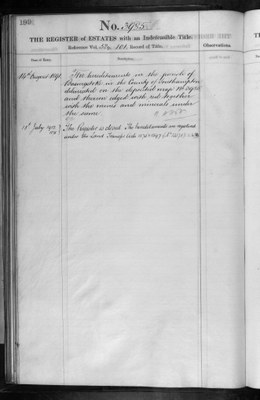 190
No. 3985
THE REGISTER of ESTATES with an Indefeasible Title.
Reference Vol. 101, Record of Title.
Date of Entry.
Observations.
14th August 1891
The hereditaments in the parish of
Basingstoke in the County of Southampton
delineated on the deposited map No. 3985
and thereon edged with red together
with the mines and minerals under
the same
The Register is closed. The hereditaments are registered
under the Land Transfer Acts